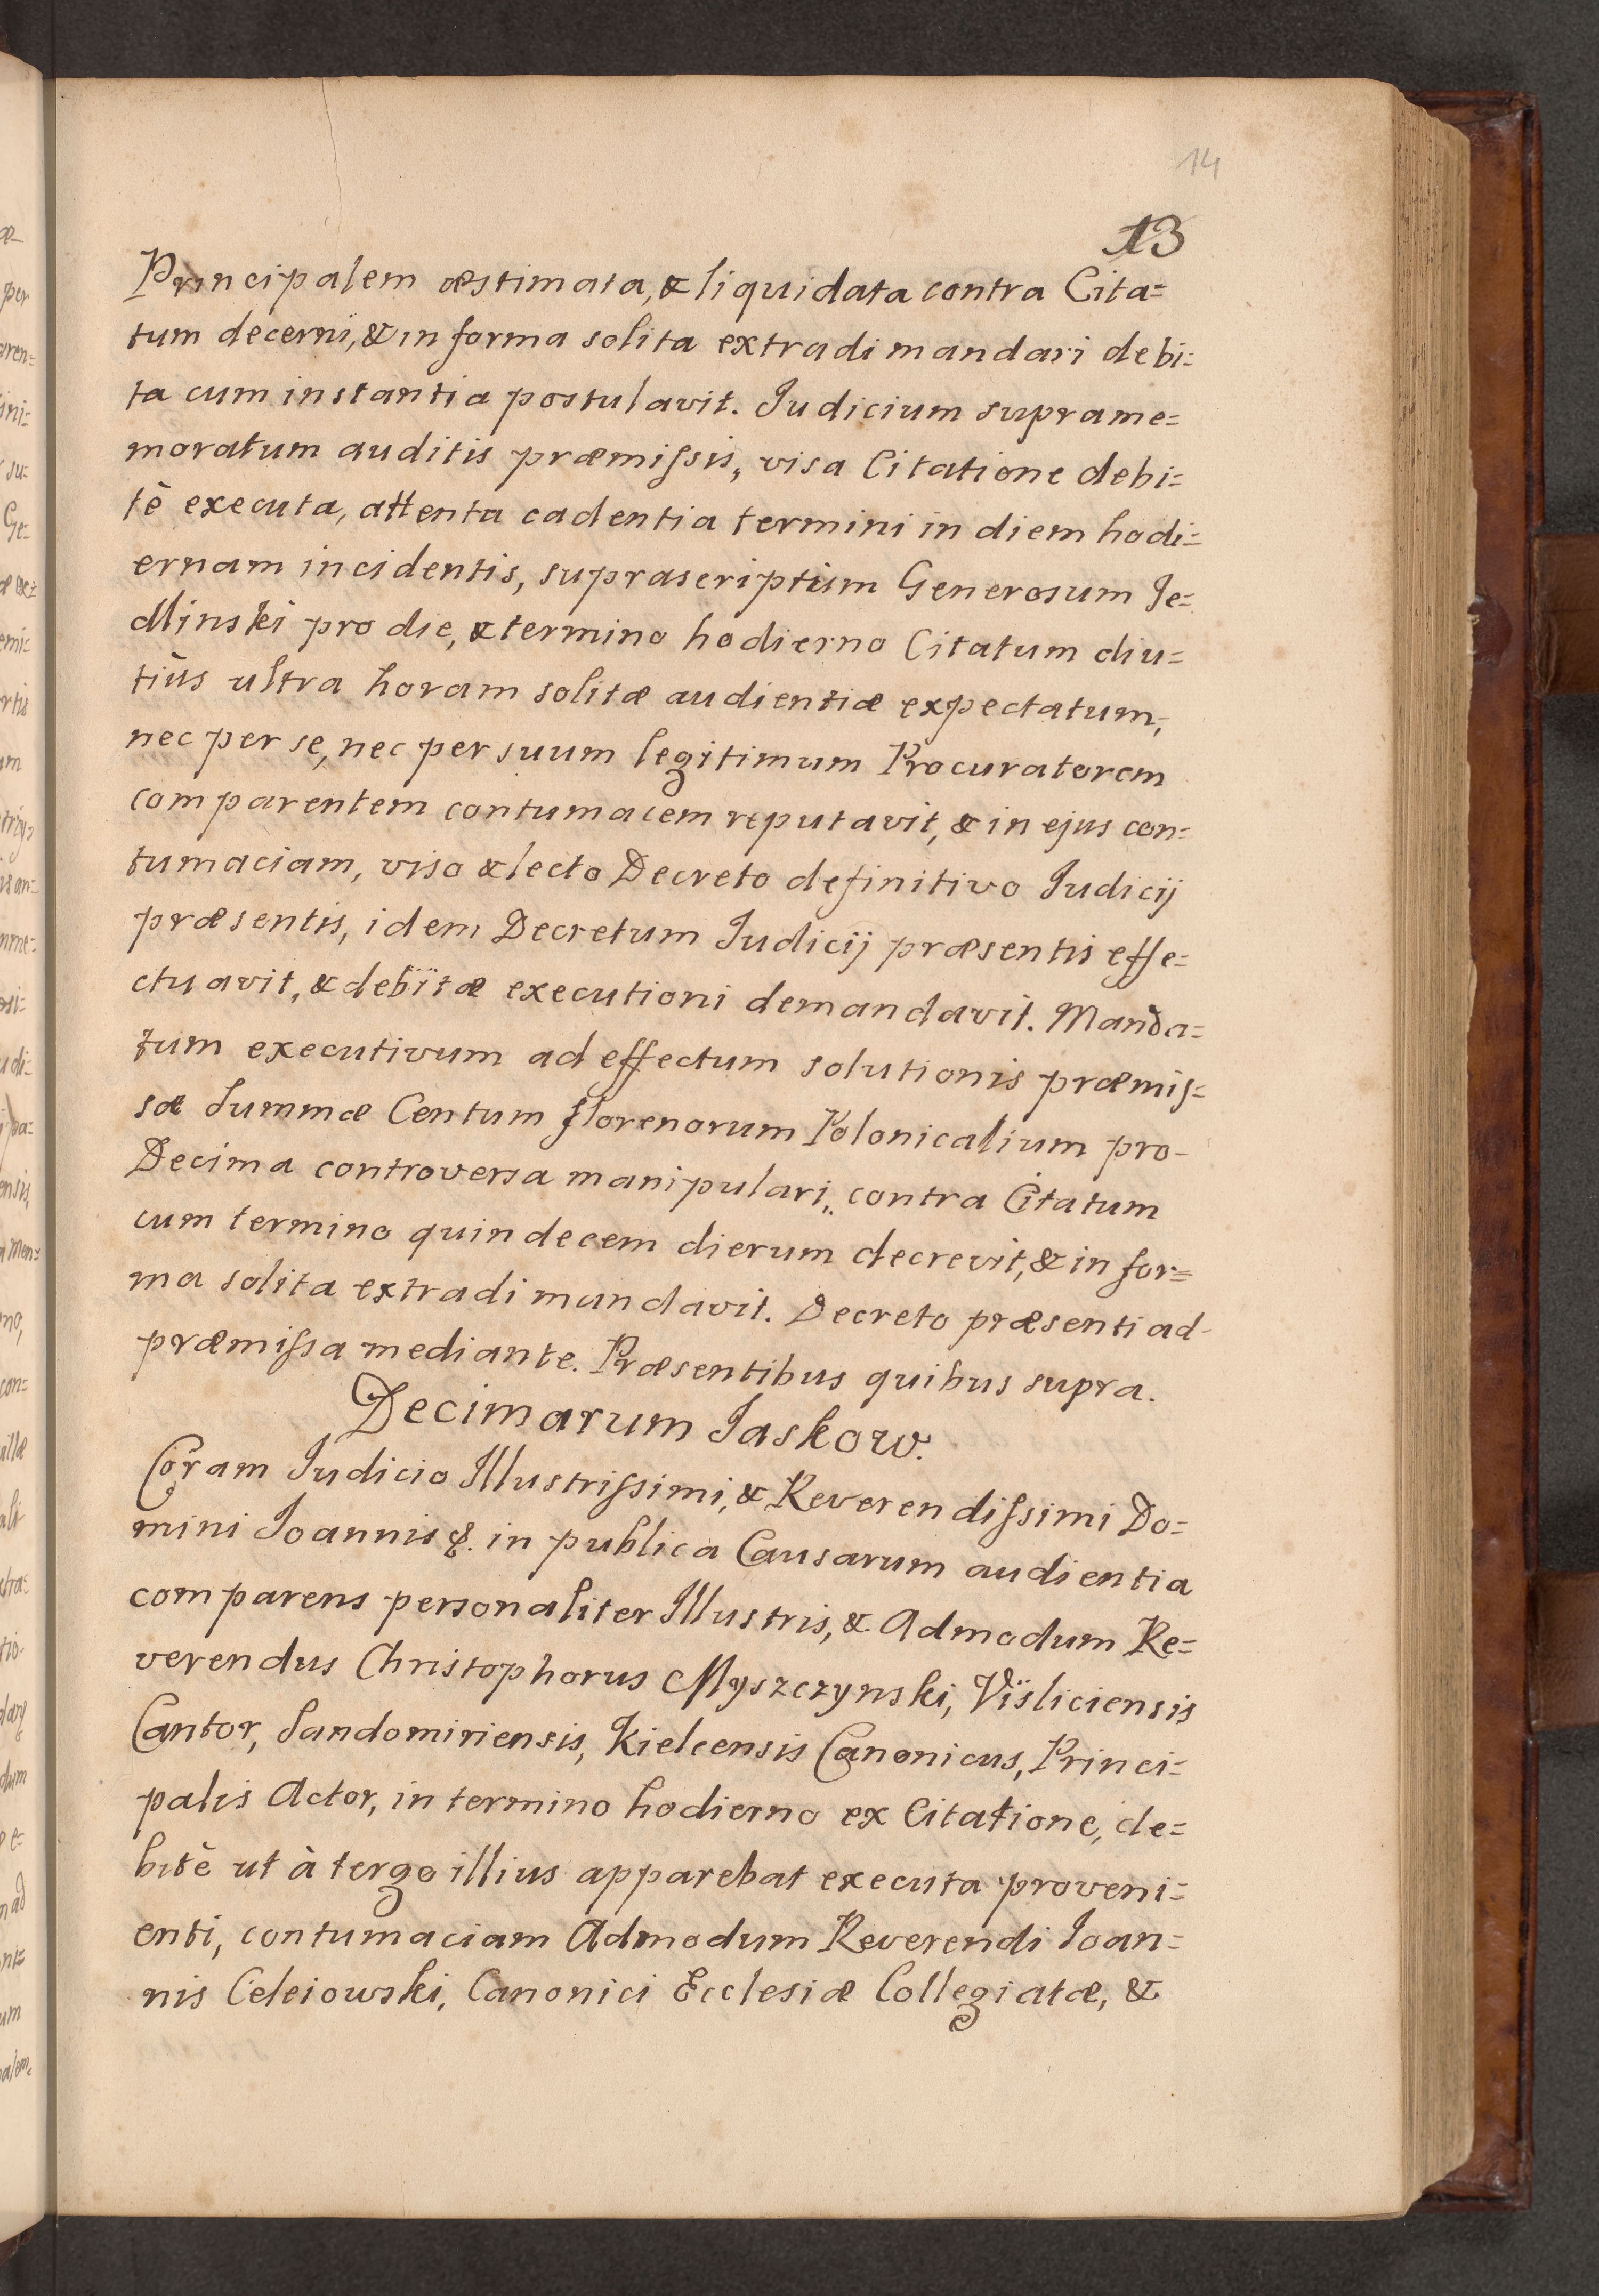 14
13
Principalem æstimata, & liquidata contra Cita=
tum decerni, & in forma solita extradi mandari debi=
ta cum instantia postulavit. Judicium suprame=
moratum auditis præmiſsis, visa Citatione debi=
tè executa, attenta cadentia termini in diem hodi=
ernam incidentis, suprascriptum Generosum Je=
dlinski pro die, & termino hodierno Citatum diu=
tiùs ultra horam solitæ audientiæ expectatum,
nec per se, nec per suum legitimum Procuratorem
comparentem contumacem reputavit, & in ejus con=
tumaciam, viso & lecto Decreto definitivo Judicij
præsentis, idem Decretum Judicij præsentis effe=
ctuavit, & debitæ executioni demandavit. Manda=
tum executivum ad effectum solutionis præmis=
sæ Summæ Centum florenorum Polonicalium pro-
Decima controversa manipulari, contra Citatum
cum termino quindecem dierum decrevit, & in for=
ma solita extradi mandavit. Decreto præsenti ad-
præmiſsa mediante. Præsentibus quibus supra.
Decimarum Jaskow.
Coram Judicio Illustriſsimi, & Reverendiſsimi Do=
mini Joannis &. in publica Causarum audientia
comparens personaliter Illustris, & Admodum Re=
verendus Christophorus Myszczynski, Visliciensis
Cantor, Sandomiriensis, Kielcensis Canonicus, Princi=
palis Actor, in termino hodierno ex Citatione, de=
bitè ut à tergo illius apparebat executa proveni=
enti, contumaciam Admodum Reverendi Joan=
nis Celeiowski, Canonici Ecclesiæ Collegiatæ, &